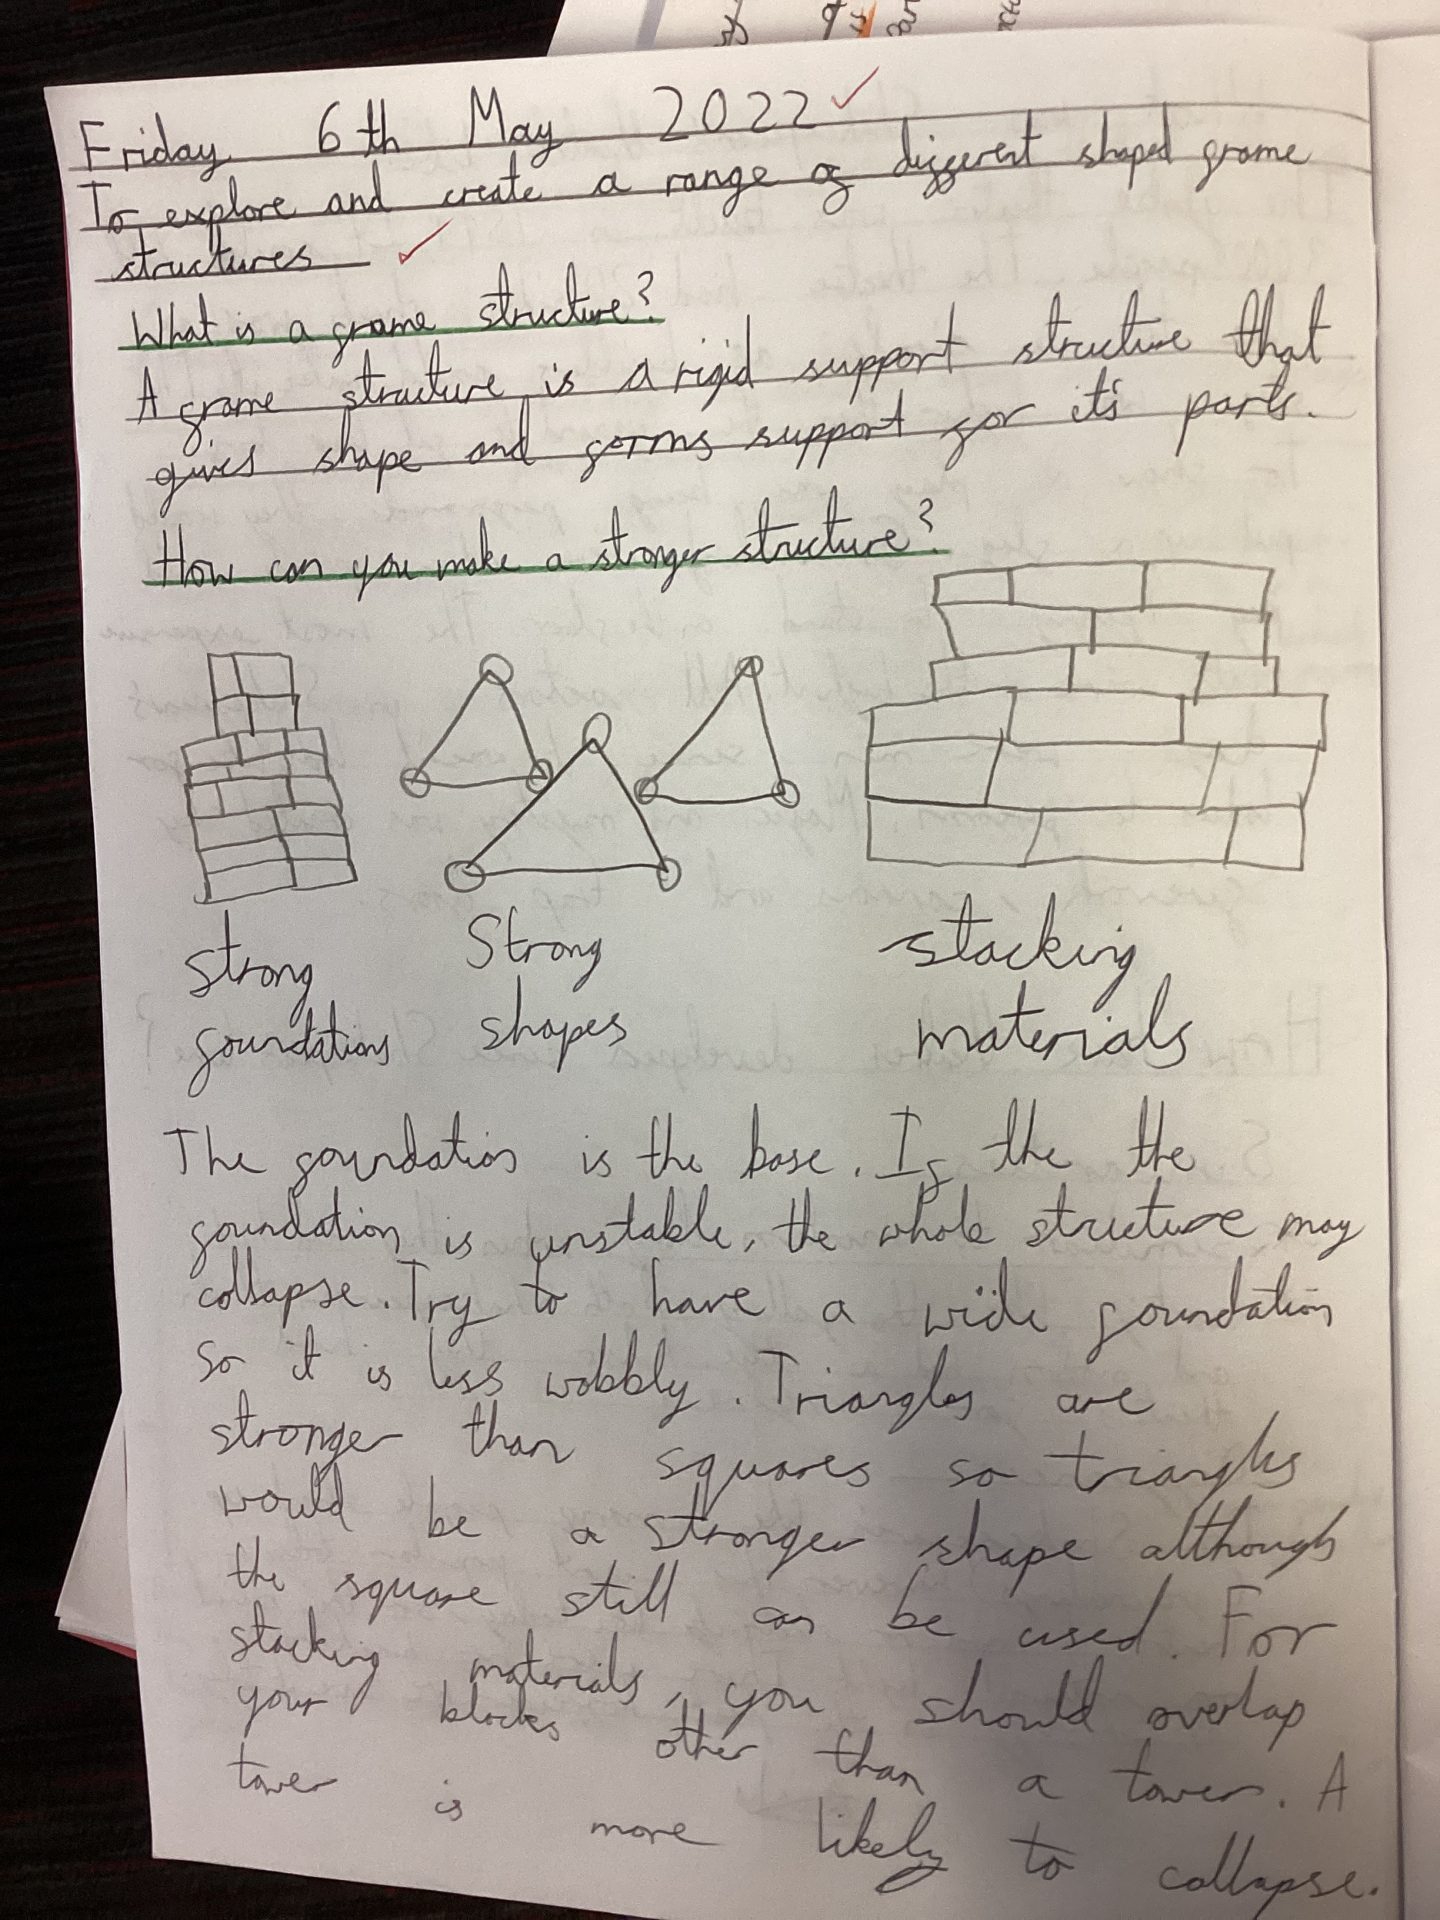 Friday 6th May 2022
To explore and create a range of different shaped frame
structures
What is a frame structure?
A frame structure is a rigid support structure that
gives shape and forms support for it's parts.
How can you make a stronger structure?
strong
foundations
Strong
shapes
stacking
materials
The foundation is the base. If the the
foundation is unstable, the whole structure may
collapse. Try to have a wide foundation
so it is less wobbly. Triangles are
stronger than squares so triangles
would be a stronger shape although
the square still can be used. For
stacking materials, you should overlap
your blocks other than a tower. A
tower is more likely to collapse.